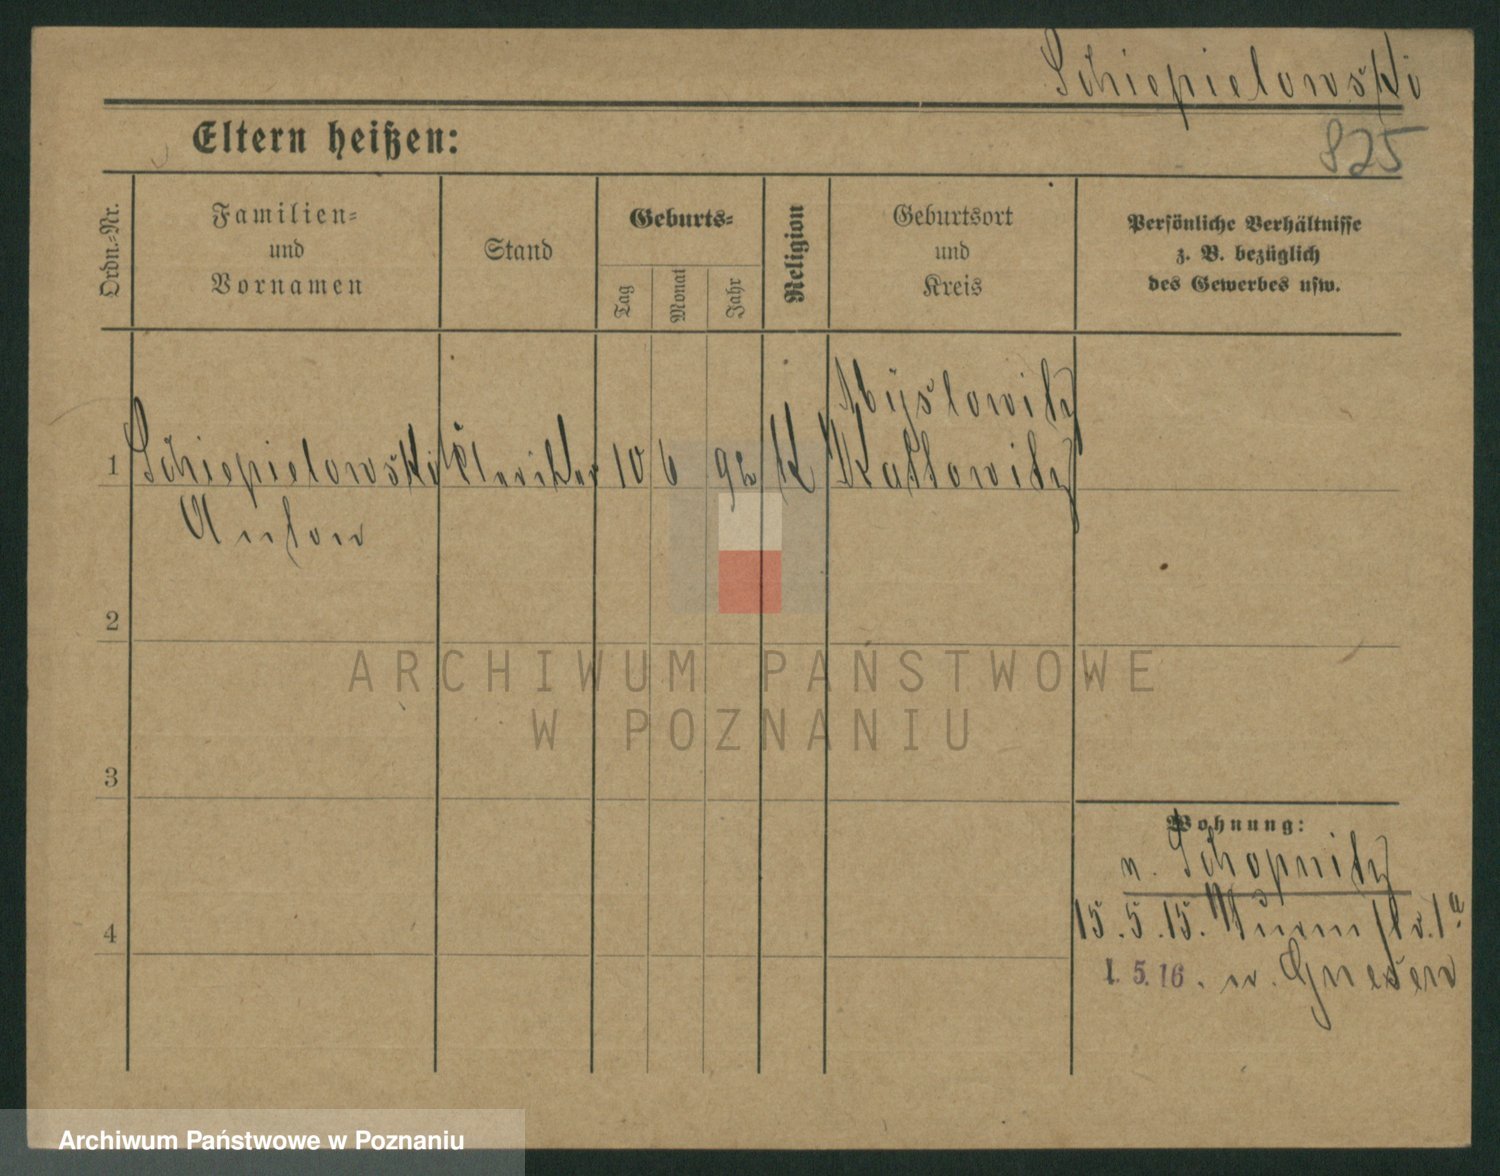 Schiepielowski
825
Eltern heißen:
Ordn.-Nr.
Familien-
und
Vornamen
Stand
Geburts-
Tag
Monat
Jahr
Religion
Geburtsort
und
Kreis
Persönliche Verhältnisse
z. B. bezüglich
des Gewerbes usw.
Myslowitz
1 Schiepielowski Kleriker 10 6 92 K Kattowitz
Anton
2
3
4
Wohnung:
n. Schopnitz
15. 5. 15. Wurmstr. 1a
1. 5. 16. n. Gnesen
ARCHIWUM PAŃSTWOWE
W POZNANIU
Archiwum Państwowe w Poznaniu